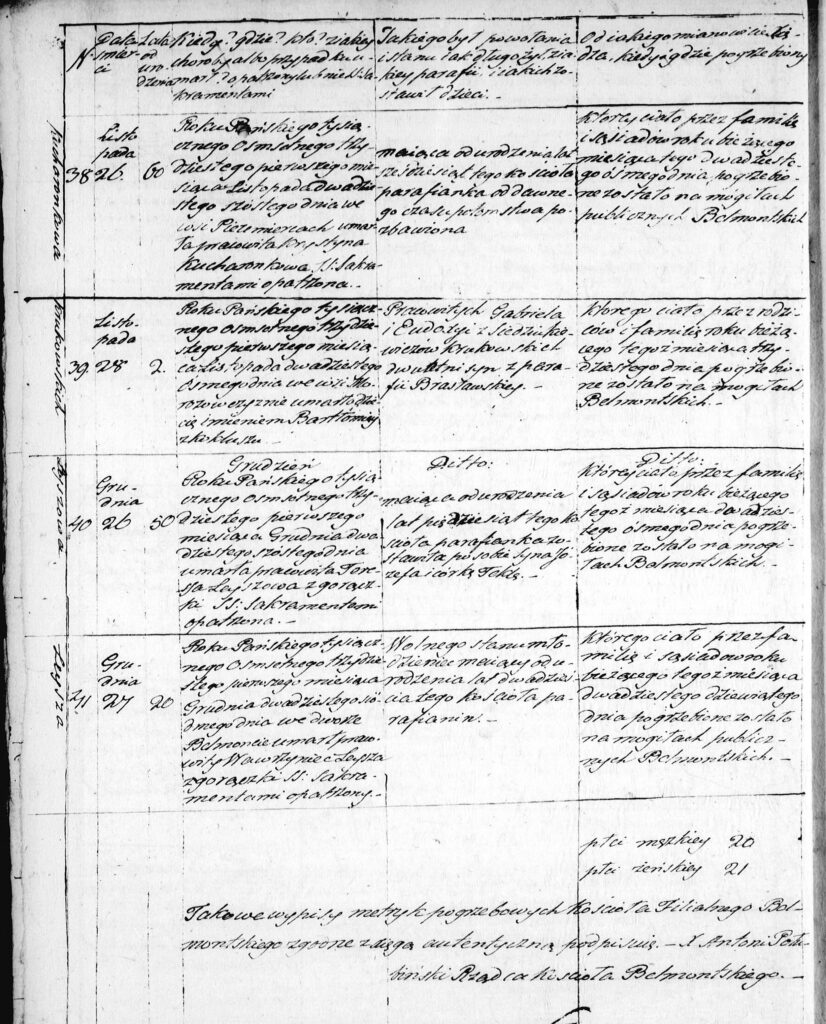 N
Data śmierci
Lata od urodzenia
Kiedy? gdzie? kto? z iakiey
choroby albo przypadku u-
marł? opatrzony lub nie SS. Sa-
kramentami
Jakiego był powołania
i stanu iak długo żył, z ia-
kiey parafii, i iakich zo-
stawił dzieci. -
Od iakiego mianowicie xię-
dza, kiedy i gdzie pogrzebiony
Kucharonkowa
38
Listo
pada
26
60
Roku Pańskiego tysią-
cznego Osmsetnego trzy-
dziestego pierwszego mie-
siąca Listopada dwadzie-
stego szóstego dnia we
wsi umar-
ła pracowita Krystyna
Kucharonkowa SS: Sakra-
mentami opatrzona. -
maiąca od urodzenia lat
sześćdziesiąt tego kościoła
parafianka od dawne-
go czasu potomstwa po-
zbawiona
ktorey ciało przez familię
i sąsiadow roku bieżącego
miesiąca tego dwadzieste-
go ósmego dnia pogrzebio-
ne zostało na mogiłach
publicznych Belmontskich
Krukowskich
39
Listo-
pada
28
2.
Roku Pańskiego tysiącz-
nego Osmsetnego trzydzie-
stego pierwszego miesią-
ca Listopada dwadziestego
Osmego dnia we wsi Mo-
rozowszyznie umarło dzie-
cię imieniem Bartłomiey
z kokluszu -
Prawowitych Gabriela
i Eudoxyi z Siedziuko-
wiczów Krukowskich
dwuletni syn z para-
fii Brasławskiey. -
ktorego ciało przez rodzi-
ców i familią roku bieżą-
cego tegoż miesiąca trzy-
dziestego dnia pogrzebio-
ne zostało na mogiłach
Belmontskich. -
Łyszowa
40
Gru-
dnia
26
50
Grudzień
Roku Pańskiego tysią-
cznego Osmsetnego trzy-
dziestego pierwszego
miesiąca Grudnia dwa-
dziestego szóstego dnia
umarła pracowita Tere-
sa Łyszowa z gorącz-
ki SS: Sakramentami
opatrzona. -
Ditto:
maiąca od urodzenia
lat pięćdziesiąt tego ko-
ścioła parafianka zo-
stawiła po sobie syna Jó-
zefa i córkę Teklę. -
Ditto:
ktorey ciało przez familię
i sąsiadow roku bieżącego
tegoż miesiąca dwadzies-
tego ósmego dnia pogrze-
bione zostało na mogi-
łach Belmontskich. -
Łysza
41
Gru-
dnia
27
20
Roku Pańskiego tysiącz-
nego Osmsetnego trzydzie-
stego pierwszego miesiąca
Grudnia dwadziestego sió-
dmego dnia we dworze
Belmoncie umarł praco-
wity Wawrzyniec Łysza
z gorączki SS: Sakra-
mentami opatrzony. -
Wolnego stanu mło-
dzieniec maiący od u-
rodzenia lat dwadzieś-
cia tego kościoła pa-
rafianin. -
Którego ciało przez fa-
milię i sąsiadow roku
bieżącego tegoż miesiąca
dwadziestego dziewiątego
dnia pogrzebione zostało
na mogiłach publicz-
nych Belmontskich. -
płci męzkiey 20
płci żeńskiey 21
Takowe wypisy metryk pogrzebowych Kościoła Filialnego Bel-
montskiego zgodne z xięgą autentyczną podpisuię. - X Antoni
Rządca Kościoła Belmontskiego. -